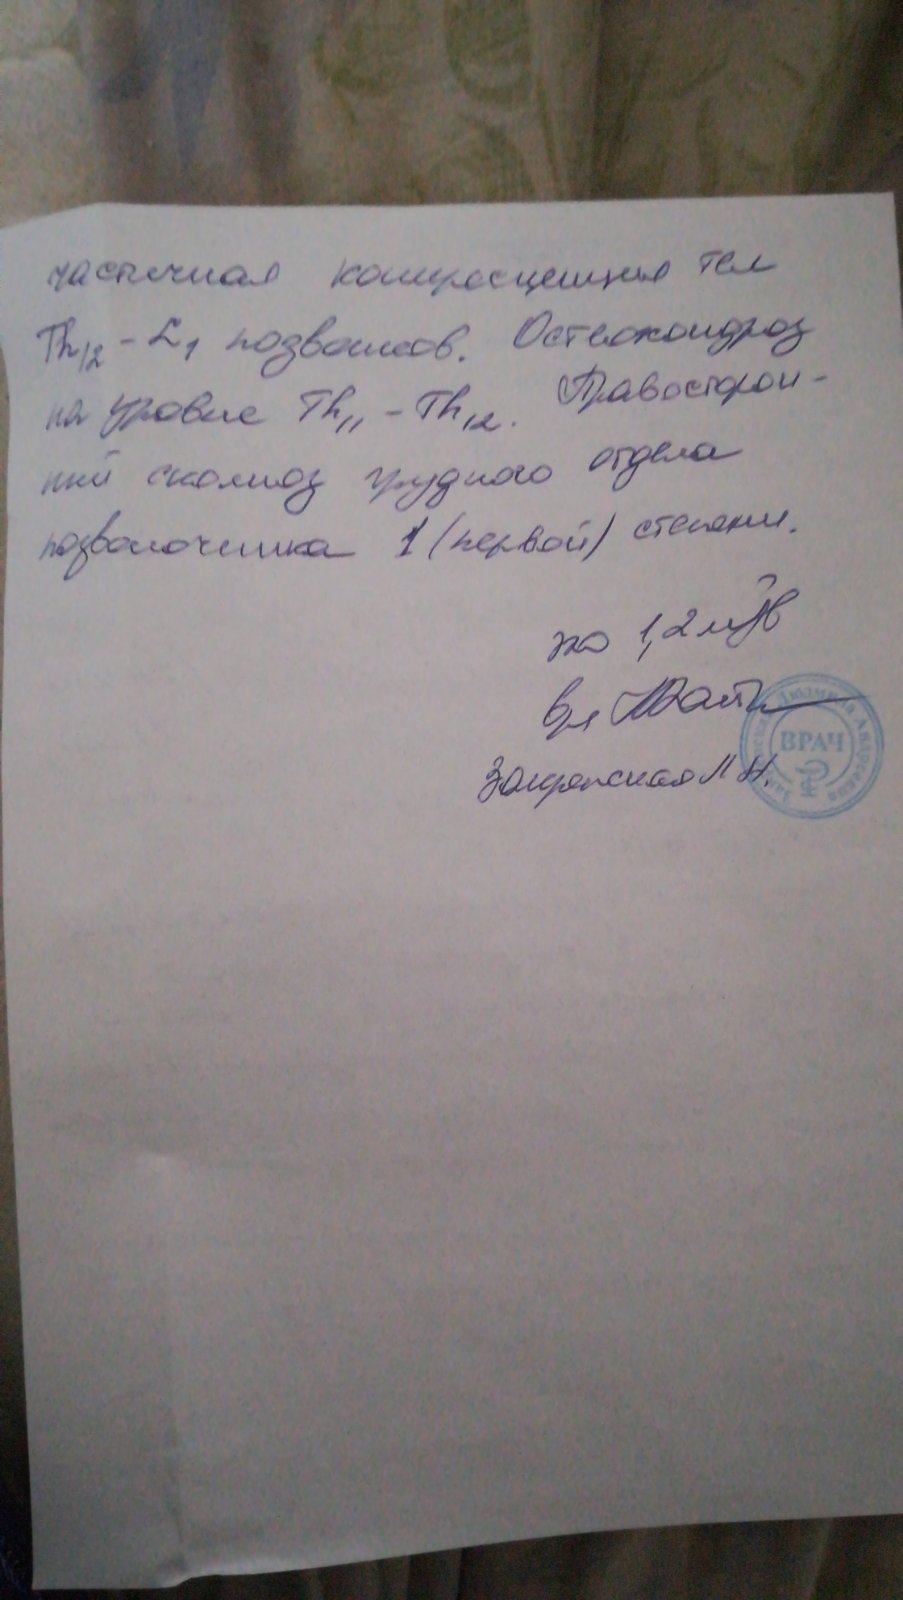 частичная компресценция тел
Th12 - L1 позвонков. Остеохондроз
на уровне Th11 - Th12. Правосторон-
ний сколиоз грудного отдела
позвоночника 1 (первой) степени.
1,2 мЗв
ВРАЧ
Людмила Андреевна